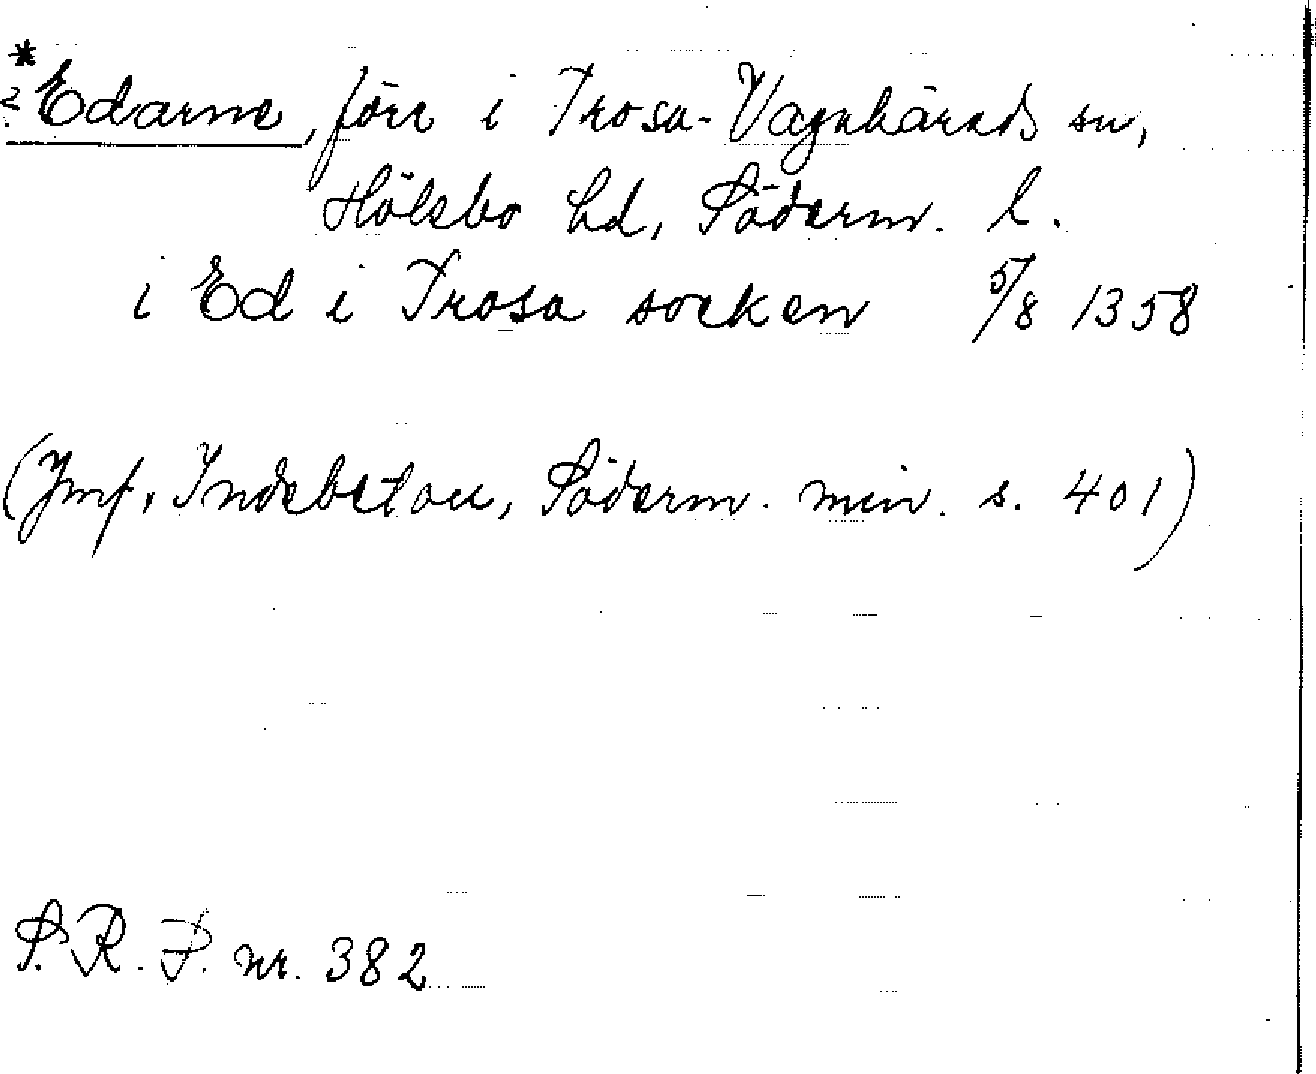 *
? Edarne, förr i Trosa-Vagnhärads sn,
Hölebo hd, Söderm. l.
i Ed i Trosa socken 5/8 1358
(Jmf. Indebetou, Söderm. min. s. 401)
S. R. P. nr. 382